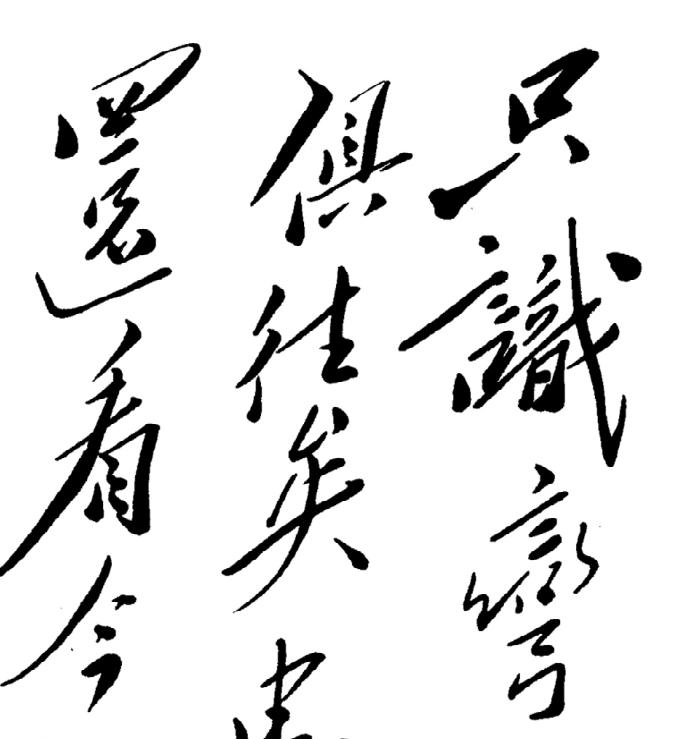 只識彎
俱往矣
還看今